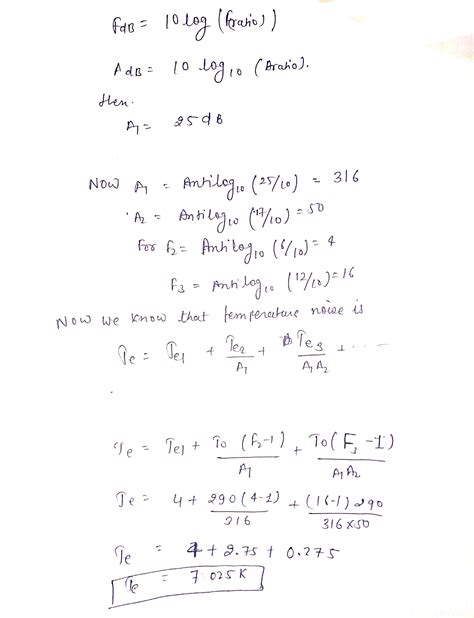 FdB = 10 log (Fratio)
AdB = 10 log10 (Aratio).
then.
A1 = 25dB
Now A1 = Antilog10 (25/10) = 316
A2 = Antilog10 (17/10) = 50
For F2 = Antilog10 (6/10) = 4
F3 = Antilog10 (12/10) = 16
Now we know that temperature noise is
Te = Te1 + Te2/A1 + Te3/A1A2 + .....
Te = Te1 + To (F2-1)/A1 + To(F3-1)/A1A2
Te = 4 + 290(4-1)/316 + (16-1)290/316x50
Te = 4 + 2.75 + 0.275
Te = 7.025K